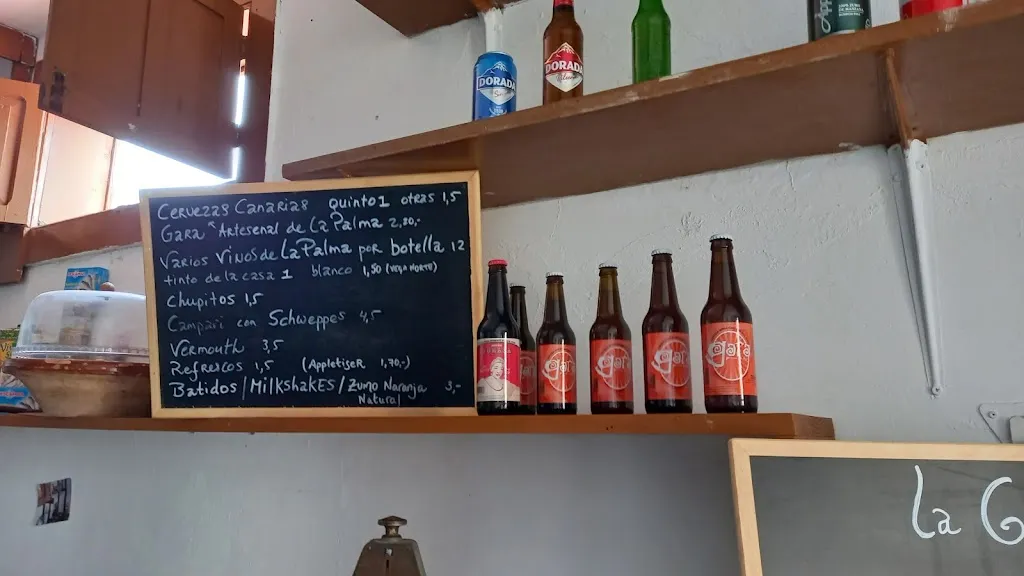 DORADA
DORADA
Cervezas Canarias quinto 1 otras 1,5
Gara "Artesenal de La Palma 2,80,-
Varios Vinos de La Palma por botella 12
tinto de la casa 1 blanco 1,50 (Vega Norte)
Chupitos 1,5
Campari con Schweppes 4,5
Vermouth 3,5
Refrescos 1,5 (Appletiser 1,70,-)
Batidos / Milkshakes / Zumo Naranja 3,-
Natural
gara
gara
gara
gara
La G